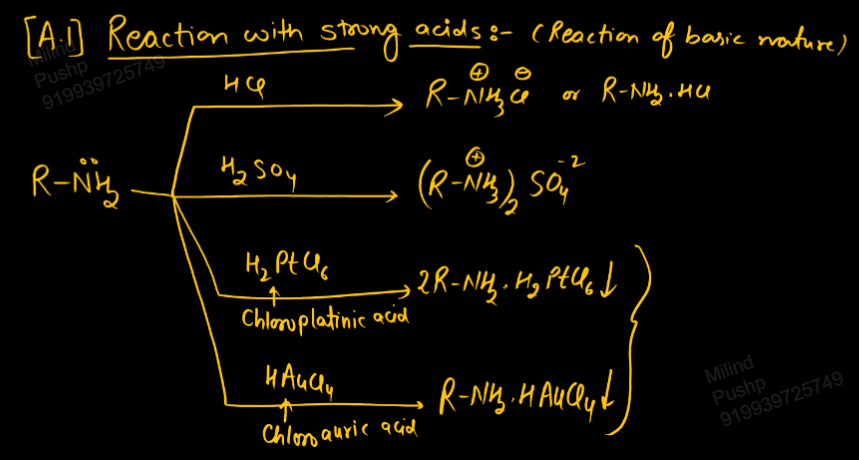 [A.1] Reaction with strong acids :- (Reaction of basic nature)
Milind
Pushp
919939725749
HCl
R-NH₃⁺Cl⁻ or R-NH₂.HCl
R-N̈H₂
H₂SO₄
(R-NH₃⁺)₂ SO₄⁻²
H₂PtCl₆
2R-NH₂.H₂PtCl₆↓
Chloroplatinic acid
HAuCl₄
R-NH₂.HAuCl₄↓
Chloroauric acid
Milind
Pushp
919939725749